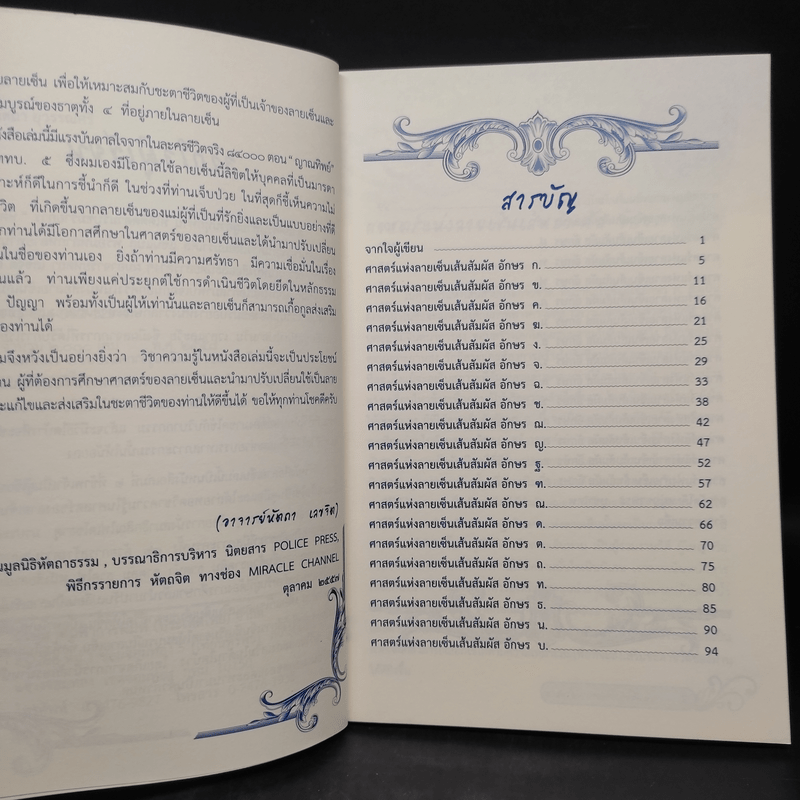 ลายเซ็น เพื่อให้เหมาะสมกับชะตาชีวิตของผู้ที่เป็นเจ้าของลายเซ็นและ
มบูรณ์ของธาตุทั้ง ๔ ที่อยู่ภายในลายเซ็น
ังสือเล่มนี้มีแรงบันดาลใจจากในละครชีวิตจริง ๘๔๐๐๐ ตอน "ญาณทิพย์"
ททบ. ๕ ซึ่งผมเองมีโอกาสใช้ลายเซ็นนี้ลิขิตให้บุคคลที่เป็นมารดา
าะห์ก็ดีในการชี้นำก็ดี ในช่วงที่ท่านเจ็บป่วย ในที่สุดก็ชี้เห็นความไม่
วิต ที่เกิดขึ้นจากลายเซ็นของแม่ผู้ที่เป็นที่รักยิ่งและเป็นแบบอย่างที่ดี
กท่านได้มีโอกาสศึกษาในศาสตร์ของลายเซ็นและได้นำมาปรับเปลี่ยน
นในชื่อของท่านเอง ยิ่งถ้าท่านมีความศรัทธา มีความเชื่อมั่นในเรื่อง
นแล้ว ท่านเพียงแค่ประยุกต์ใช้การดำเนินชีวิตโดยยึดในหลักธรรม
ปัญญา พร้อมทั้งเป็นผู้ให้เท่านั้นและลายเซ็นก็สามารถเกื้อกูลส่งเสริม
องท่านได้
มจึงหวังเป็นอย่างยิ่งว่า วิชาความรู้ในหนังสือเล่มนี้จะเป็นประโยชน์
าน ผู้ที่ต้องการศึกษาศาสตร์ของลายเซ็นและนำมาปรับเปลี่ยนใช้เป็นลาย
ะแก้ไขและส่งเสริมในชะตาชีวิตของท่านให้ดีขึ้นได้ ขอให้ทุกท่านโชคดีครับ
(อาจารย์หัตถา เลขจิต)
นมูลนิธิหัตถาธรรม , บรรณาธิการบริหาร นิตยสาร POLICE PRESS,
พิธีกรรายการ หัตถจิต ทางช่อง MIRACLE CHANNEL
ตุลาคม ๒๕๕๗
สารบัญ
จากใจผู้เขียน 1
ศาสตร์แห่งลายเซ็นเส้นสัมผัส อักษร ก. 5
ศาสตร์แห่งลายเซ็นเส้นสัมผัส อักษร ข. 11
ศาสตร์แห่งลายเซ็นเส้นสัมผัส อักษร ค. 16
ศาสตร์แห่งลายเซ็นเส้นสัมผัส อักษร ฆ. 21
ศาสตร์แห่งลายเซ็นเส้นสัมผัส อักษร ง. 25
ศาสตร์แห่งลายเซ็นเส้นสัมผัส อักษร จ. 29
ศาสตร์แห่งลายเซ็นเส้นสัมผัส อักษร ฉ. 33
ศาสตร์แห่งลายเซ็นเส้นสัมผัส อักษร ช. 38
ศาสตร์แห่งลายเซ็นเส้นสัมผัส อักษร ฌ. 42
ศาสตร์แห่งลายเซ็นเส้นสัมผัส อักษร ญ. 47
ศาสตร์แห่งลายเซ็นเส้นสัมผัส อักษร ฐ. 52
ศาสตร์แห่งลายเซ็นเส้นสัมผัส อักษร ฑ. 57
ศาสตร์แห่งลายเซ็นเส้นสัมผัส อักษร ณ. 62
ศาสตร์แห่งลายเซ็นเส้นสัมผัส อักษร ด. 66
ศาสตร์แห่งลายเซ็นเส้นสัมผัส อักษร ต. 70
ศาสตร์แห่งลายเซ็นเส้นสัมผัส อักษร ถ. 75
ศาสตร์แห่งลายเซ็นเส้นสัมผัส อักษร ท. 80
ศาสตร์แห่งลายเซ็นเส้นสัมผัส อักษร ธ. 85
ศาสตร์แห่งลายเซ็นเส้นสัมผัส อักษร น. 90
ศาสตร์แห่งลายเซ็นเส้นสัมผัส อักษร บ. 94